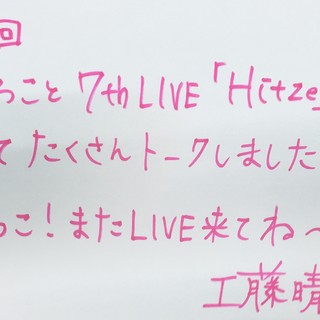 回
っこと 7th LIVE「Hitze」
て たくさんトークしました
っこ！またLIVE来てね〜
工藤晴